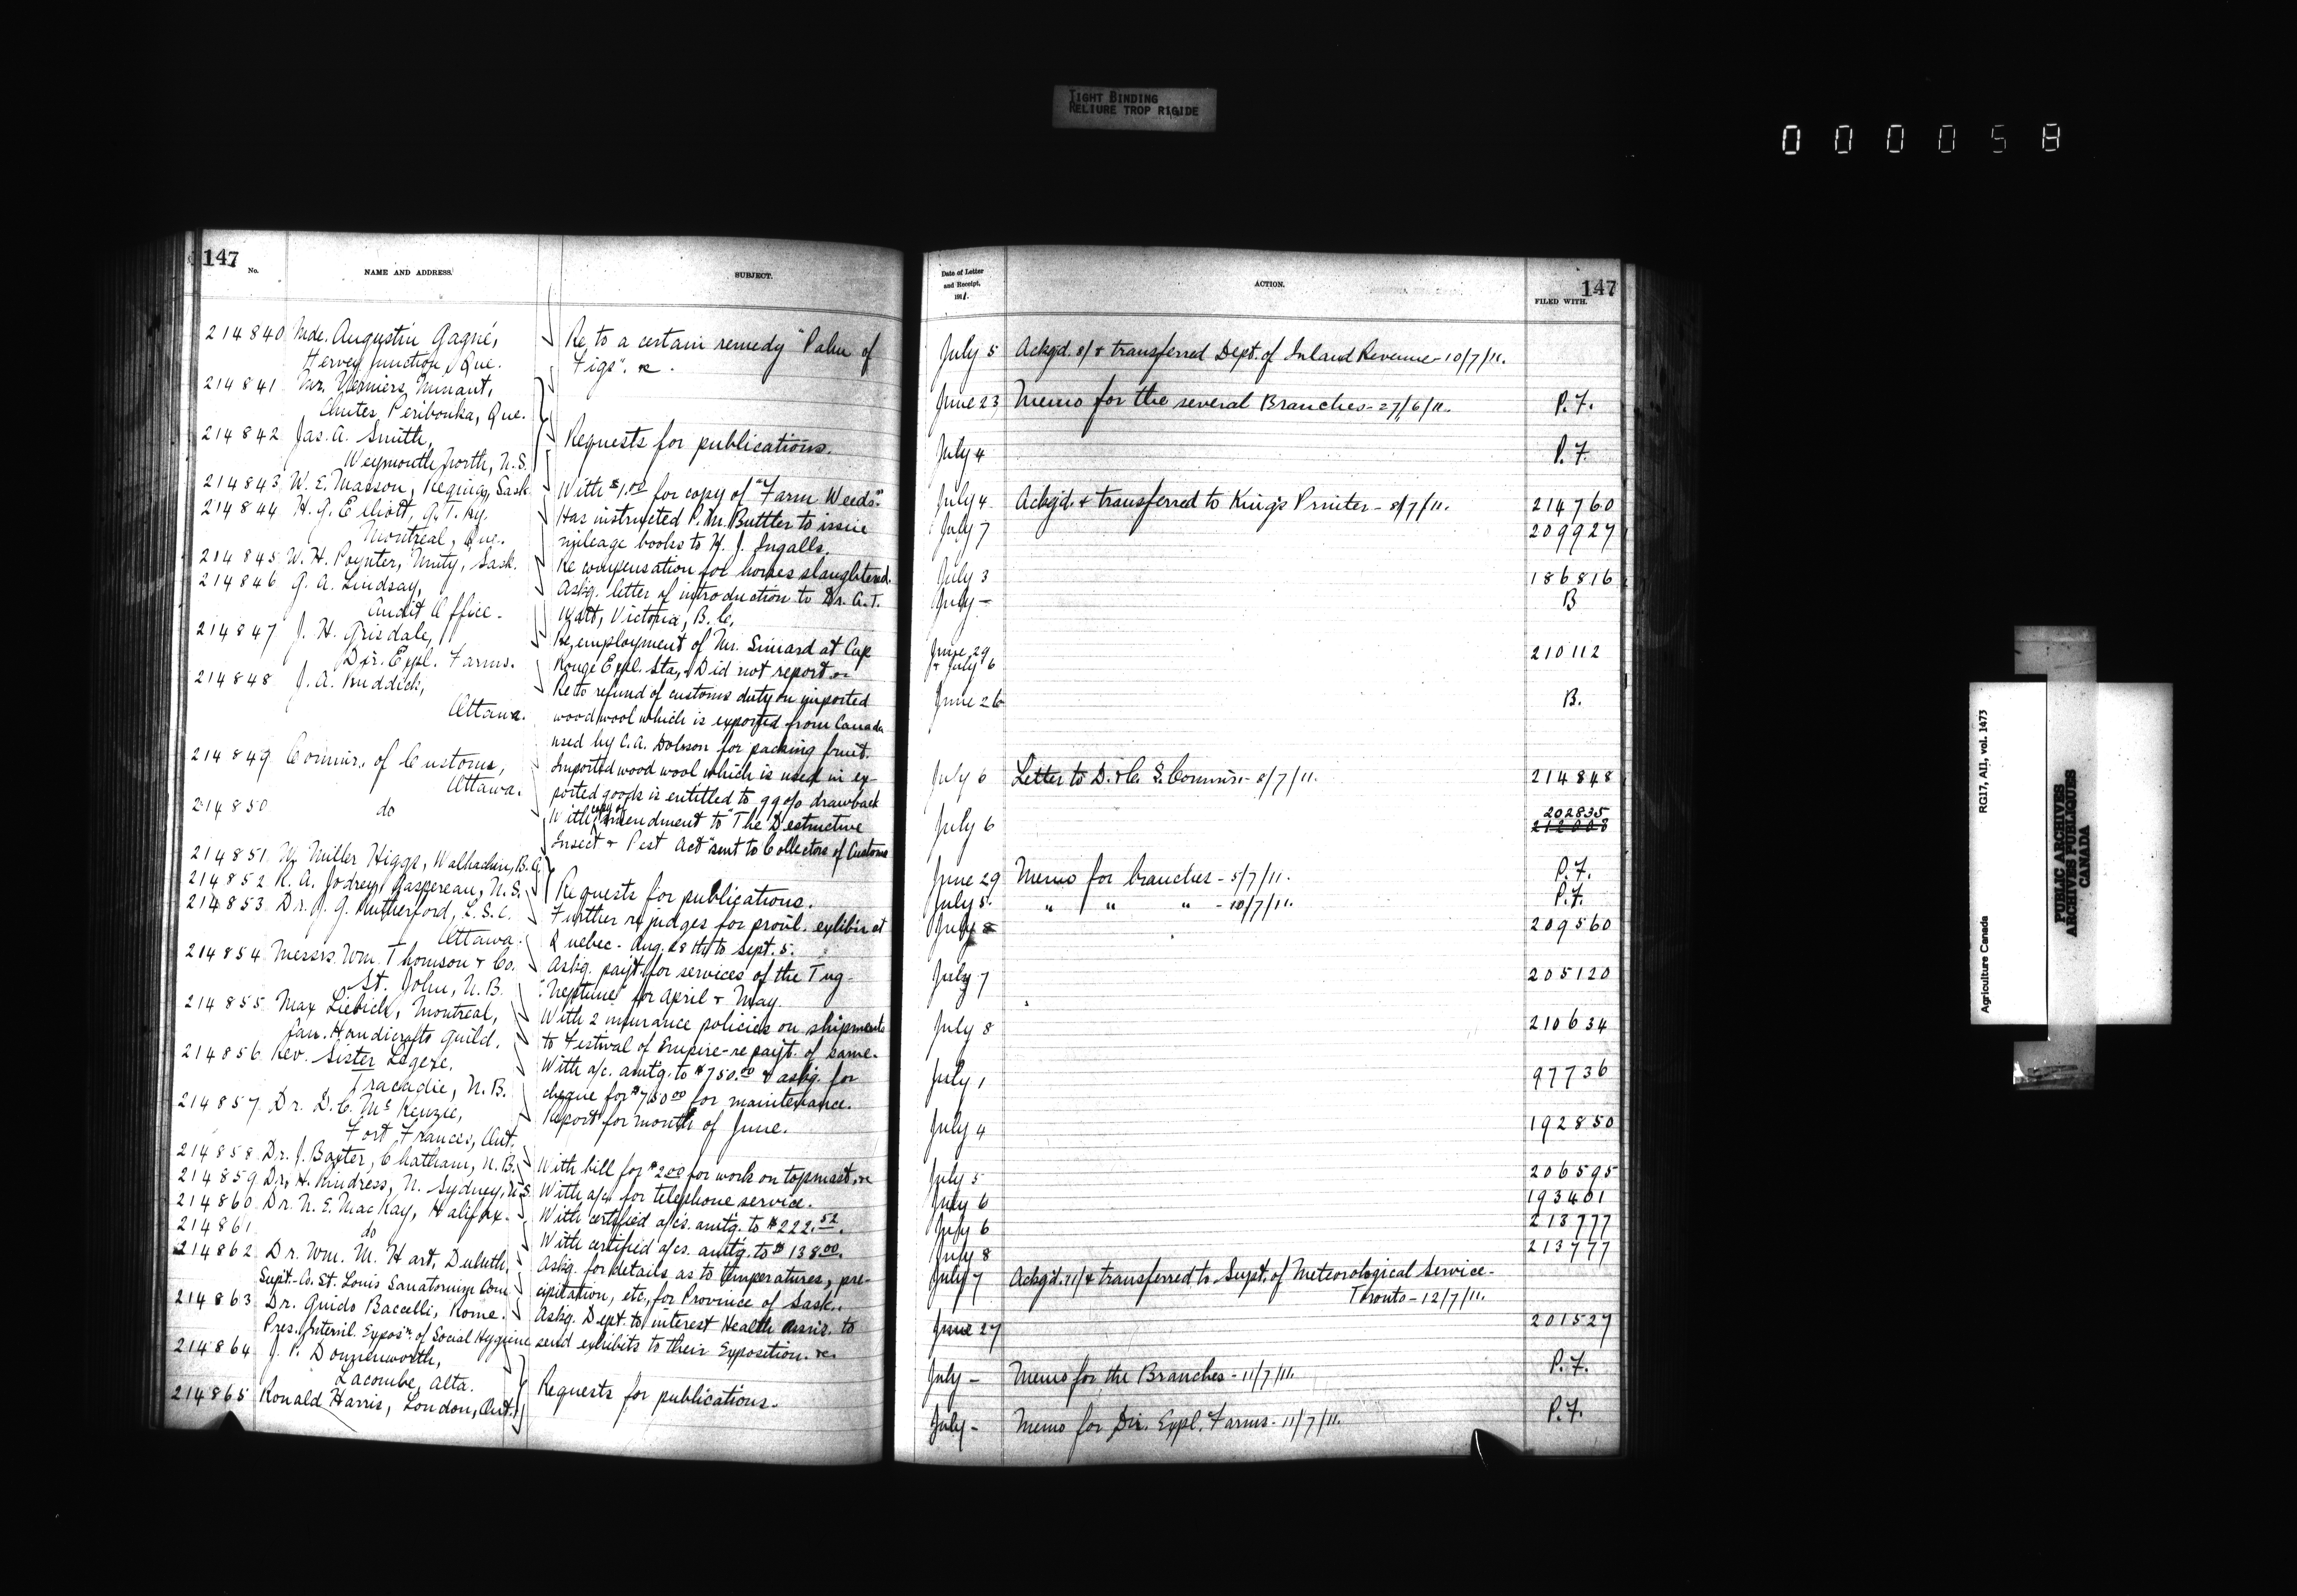 TIGHT BINDING
RELIURE TROP RIGIDE
000058
147
No.
NAME AND ADDRESS.
SUBJECT.
214840 Mde. Augustin Gagné,
Hervey Junction, Que.
Re to a certain remedy "Palm of
Figs". &c.
214841 Mr. Verniers Minant,
Chutes Peribonka, Que.
214842 Jas. A. Smith,
Weymouth North, N.S.
Requests for publications.
214843 W. E. Masson, Regina, Sask.
With $1.00 for copy of "Farm Weeds."
214844 H. G. Elliott, G.T. Ry.
Montreal, Que.
Has instructed P. M. Buttler to issue
mileage books to H. J. Ingalls.
214845 W. H. Poynter, Unity, Sask.
Re compensation for horses slaughtered.
214846 G. A. Lindsay,
Audit Office.
Askg. letter of introduction to Dr. A. T.
Watt, Victoria, B.C.
214847 J. H. Grisdale,
Dir. Expl. Farms.
Re employment of Mr. Simard at Cap
Rouge Expl. Sta, Did not report
214848 J. A. Ruddick,
Ottawa.
Re to refund of customs duty on imported
wood wool which is exported from Canada
used by C. A. Dobson for packing fruit.
214849 Commr. of Customs,
Ottawa.
Imported wood wool which is used in ex-
ported goods is entitled to 99% drawback
214850 do
With copy of amendment to "The Destructive
Insect & Pest Act" sent to Collectors of Customs
214851 W. Miller Higgs, Walhachin, B.C.
214852 R. A. Jodrey, Gaspereau, N.S.
Requests for publications.
214853 Dr. J. G. Rutherford, L.S.C.
Ottawa.
Further re judges for provl. exhibn at
Quebec - Aug. 28th to Sept. 5.
214854 Messrs. Wm. Thomson & Co.
St. John, N.B.
Askg. payt. for services of the Tug
"Neptune" for April & May.
214855 Max Liebich, Montreal,
Can. Handicrafts Guild.
With 2 insurance policies on shipments
to Festival of Empire - re payt. of same.
214856 Rev. Sister Legere,
Tracadie, N.B.
With a/c. amtg. to $750.00 & askg. for
cheque for $750.00 for maintenance.
214857 Dr. D. C. McKenzie,
Fort Frances, Ont.
Report for month of June.
214858 Dr. J. Baxter, Chatham, N.B.
With bill for $2.00 for work on topmast, &c
214859 Dr. H. Rindress, N. Sydney, N.S.
With a/c. for telephone service.
214860 Dr. N. E. MacKay, Halifax.
With certified a/cs. amtg. to $222.52.
214861 do
With certified a/cs. amtg. to $138.00.
214862 Dr. Wm. M. Hart, Duluth,
Supt.- Co. St. Louis Sanatorium Com
Askg. for details as to temperatures, pre-
cipitation, etc, for Province of Sask..
214863 Dr. Guido Baccelli, Rome.
Pres. Internl. Exposn. of Social Hygiene
Askg. Dept. to interest Health assns. to
send exhibits to their Exposition. &c.
214864 J. P. Donnenworth,
Lacombe, Alta.
214865 Ronald Harris, London, Ont.
Requests for publications.
Date of Letter
and Receipt,
1911.
ACTION.
147
FILED WITH.
July 5 Ackg'd. 8/ & transferred Dept. of Inland Revenue - 10/7/11.
June 23 Memo for the several Branches - 27/6/11. P.F.
July 4 P.F.
July 4 Ackg'd. & transferred to King's Printer - 8/7/11. 214760
July 7 209927
July 3 186816
July - B
June 29
& July 6 210112
June 26 B.
July 6 Letter to D. & C. S. Commisr. - 8/7/11. 214848
202835
July 6 212008
June 29 Memo for branches - 5/7/11. P.F.
July 5. " " " - 10/7/11. P.F.
July 8 209560
July 7 205120
July 8 210634
July 1 97736
July 4 192850
July 5 206595
July 6 193401
July 6 213777
July 8 213777
July 7 Ackg'd. 11/ & transferred to Supt. of Meteorological Service -
Toronto - 12/7/11.
June 27 201527
July - Memo for the Branches - 11/7/11. P.F.
July - Memo for Dir. Expl. Farms - 11/7/11. P.F.
Agriculture Canada
RG17, AII, vol. 1473
PUBLIC ARCHIVES
ARCHIVES PUBLIQUES
CANADA